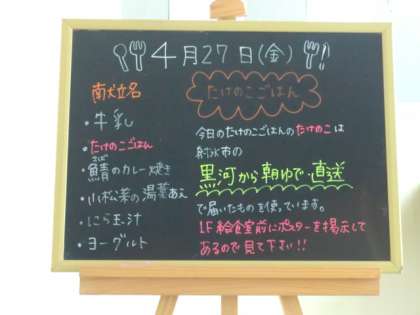 4月27日(金)
献立名
・牛乳
・たけのこごはん
・鯖のカレー焼き
さば
・小松菜の湯葉あえ
・にら玉汁
・ヨーグルト
たけのこごはん
今日のたけのこごはんのたけのこは
射水市の
黒河から朝ゆで・直送
で届いたものを使っています。
1F給食室前にポスターを掲示して
あるので見て下さい!!